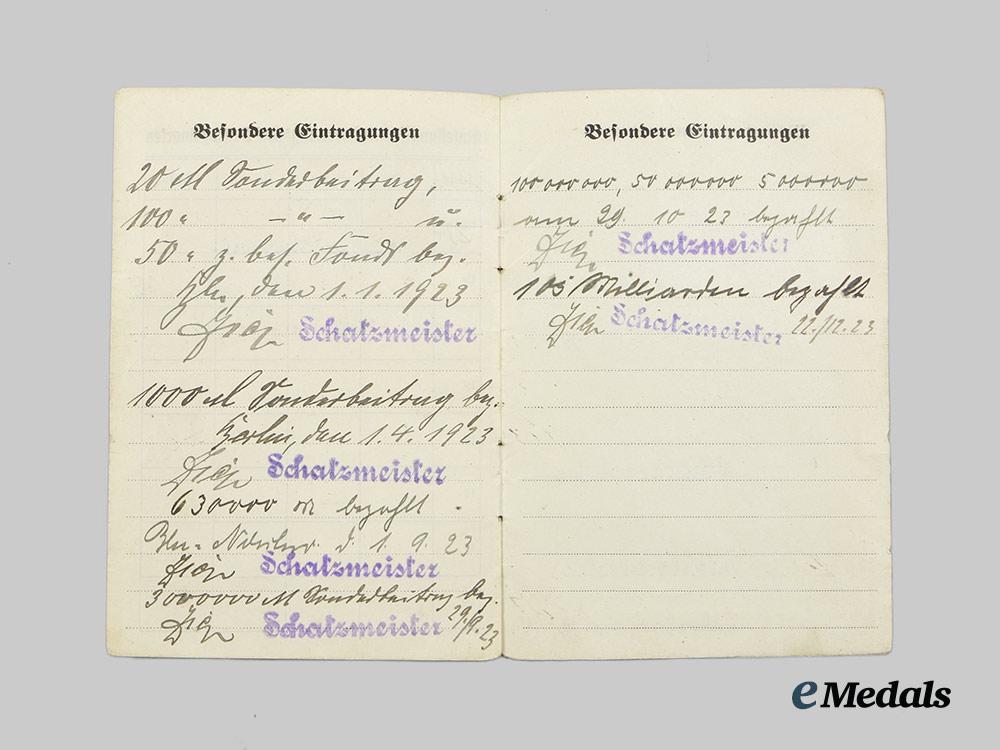 Besondere Eintragungen
20 M Sonderbeitrag,
100 " — " — u.
50 " z. bes. Fonds bez.
Bln., den 1.1.1923
Schatzmeister
1000 M Sonderbeitrag bez.
Berlin, den 1.4.1923
Schatzmeister
630000 M bezahlt
Bln. d. 1. 9. 23
Schatzmeister
3000000 M Sonderbeitrag bez.
Schatzmeister 29/9.23
Besondere Eintragungen
100 000 000, 50 000000 5 000000
am 29. 10 23 bezahlt
Schatzmeister
105 Milliarden bezahlt
Schatzmeister 22./12.23
eMedals